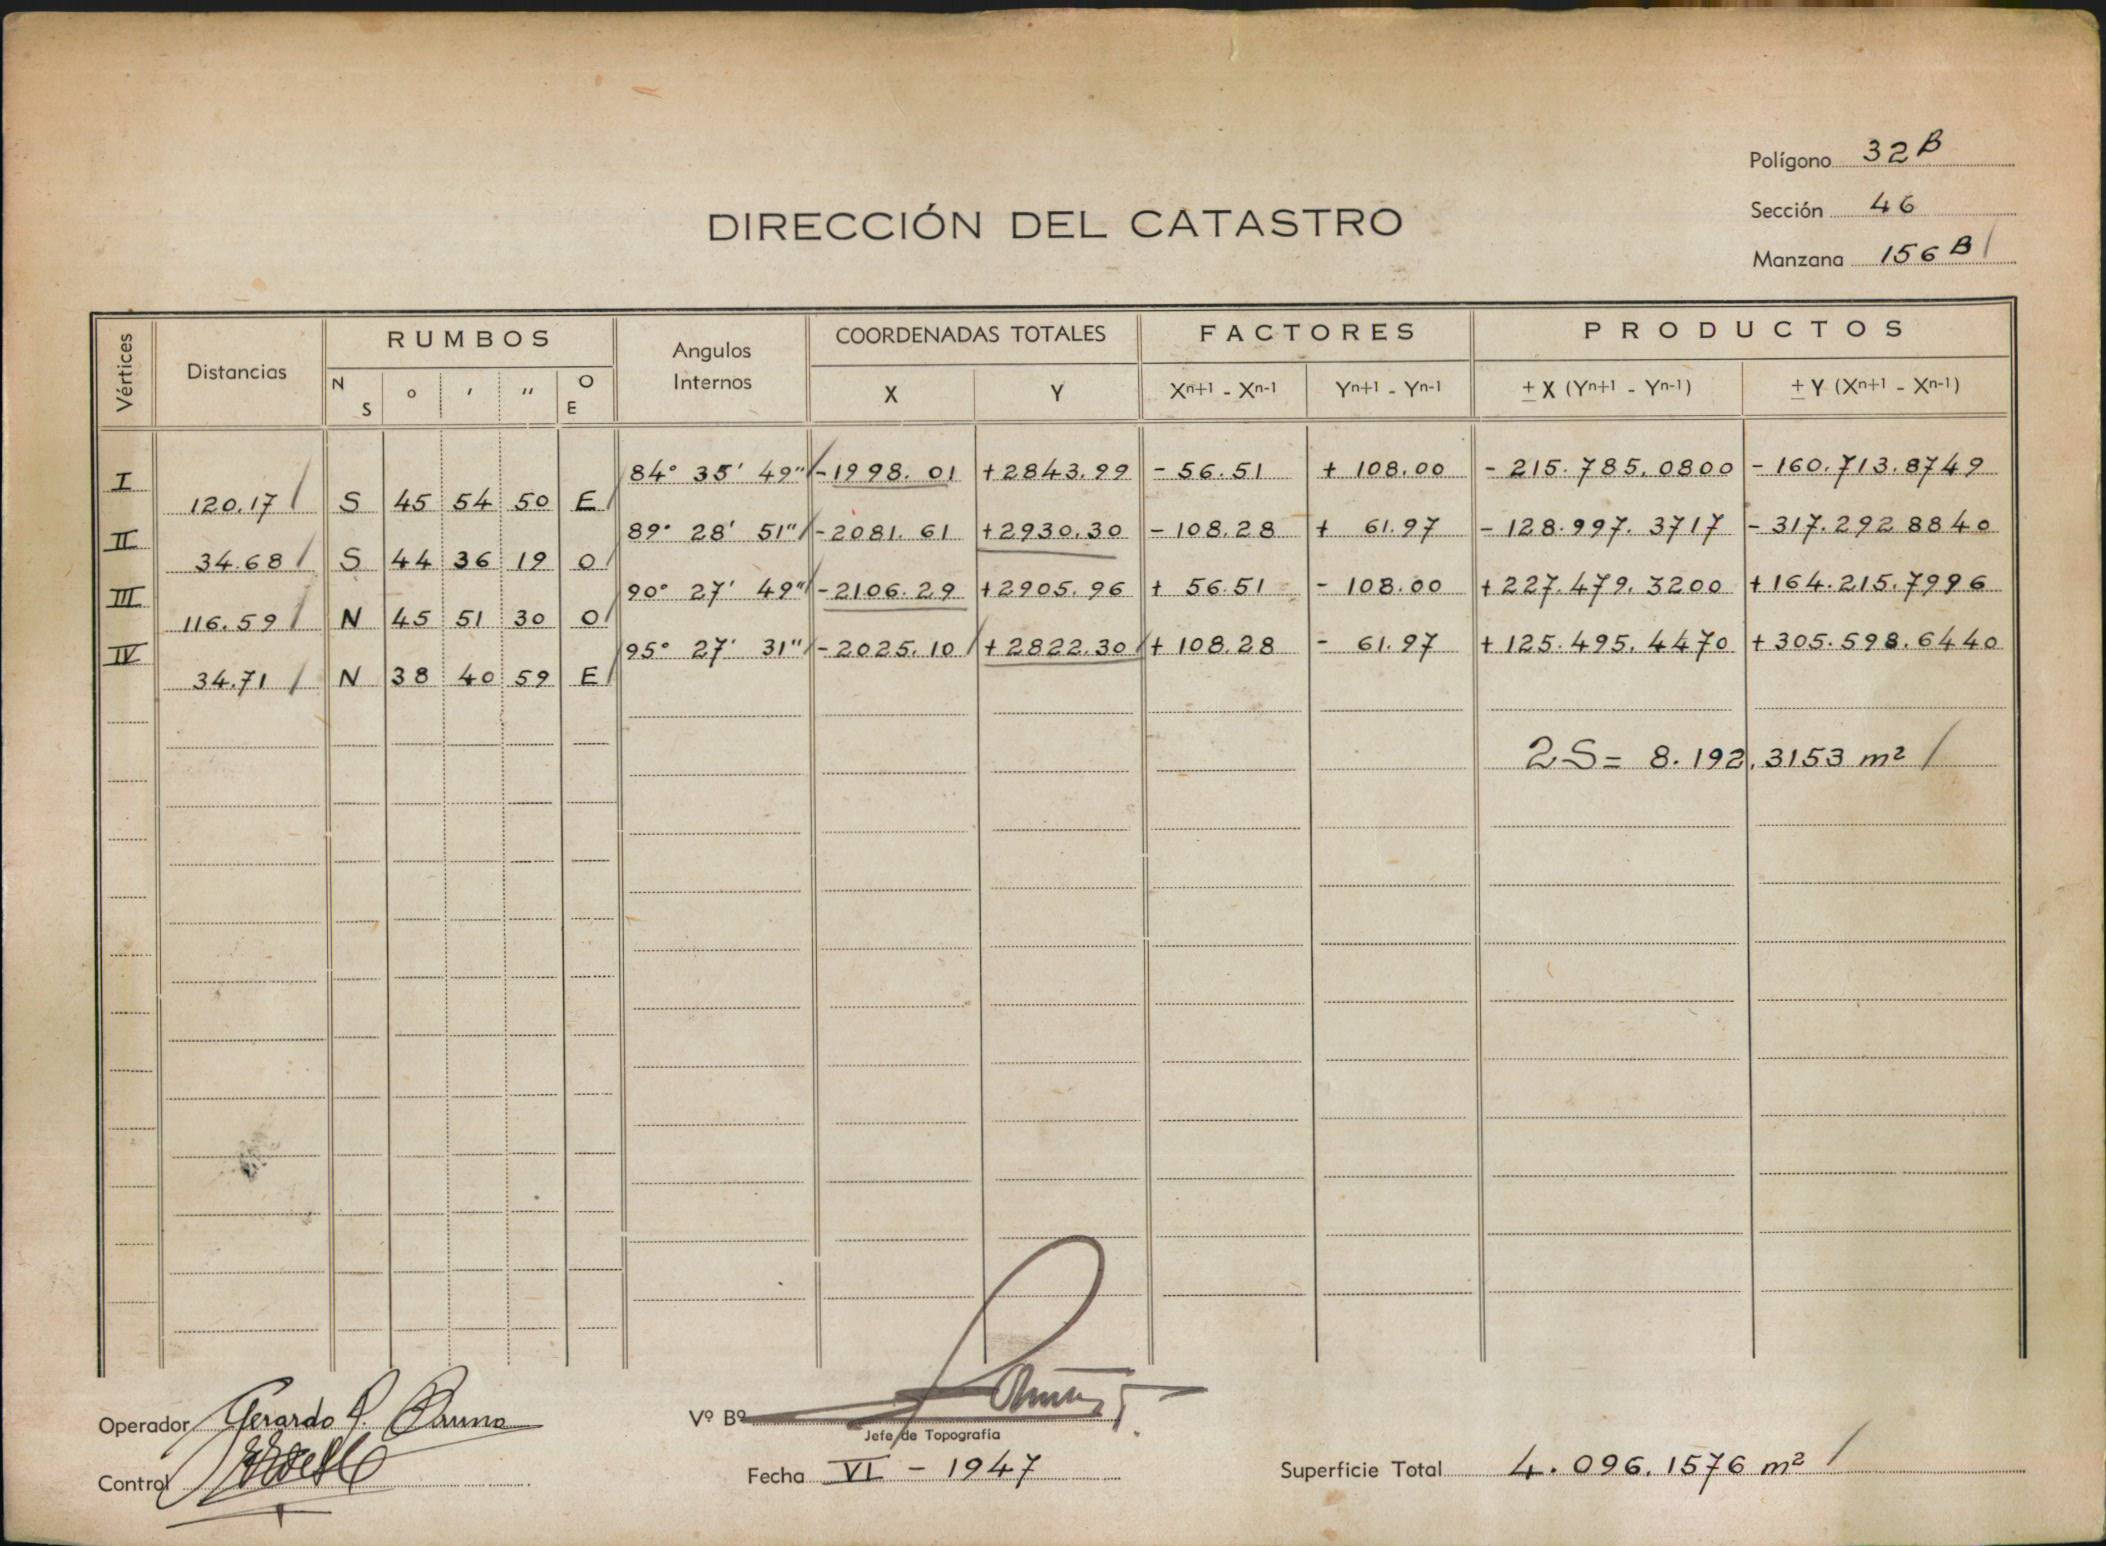 Polígono 32 B
Sección 46
DIRECCIÓN DEL CATASTRO
Manzana 156 B
Vértices Distancias RUMBOS Angulos Internos COORDENADAS TOTALES FACTORES PRODUCTOS
N S ° ' " O E X Y Xn+1 - Xn-1 Yn+1 - Yn-1 ± X (Yn+1 - Yn-1) ± Y (Xn+1 - Xn-1)
I 84° 35' 49" -1998.01 +2843.99 - 56.51 + 108.00 - 215.785.0800 - 160.713.8749
120.17 S 45 54 50 E
II 89° 28' 51" -2081.61 +2930.30 - 108.28 + 61.97 - 128.997.3717 - 317.292.8840
34.68 S 44 36 19 O
III 90° 27' 49" -2106.29 +2905.96 + 56.51 - 108.00 +227.479.3200 +164.215.7996
116.59 N 45 51 30 O
IV 95° 27' 31" -2025.10 +2822.30 + 108.28 - 61.97 +125.495.4470 +305.598.6440
34.71 N 38 40 59 E
2S= 8.192.3153 m²
Operador Gerardo
Vº Bº
Jefe de Topografía
Control
Fecha VI - 1947
Superficie Total 4.096.1576 m²